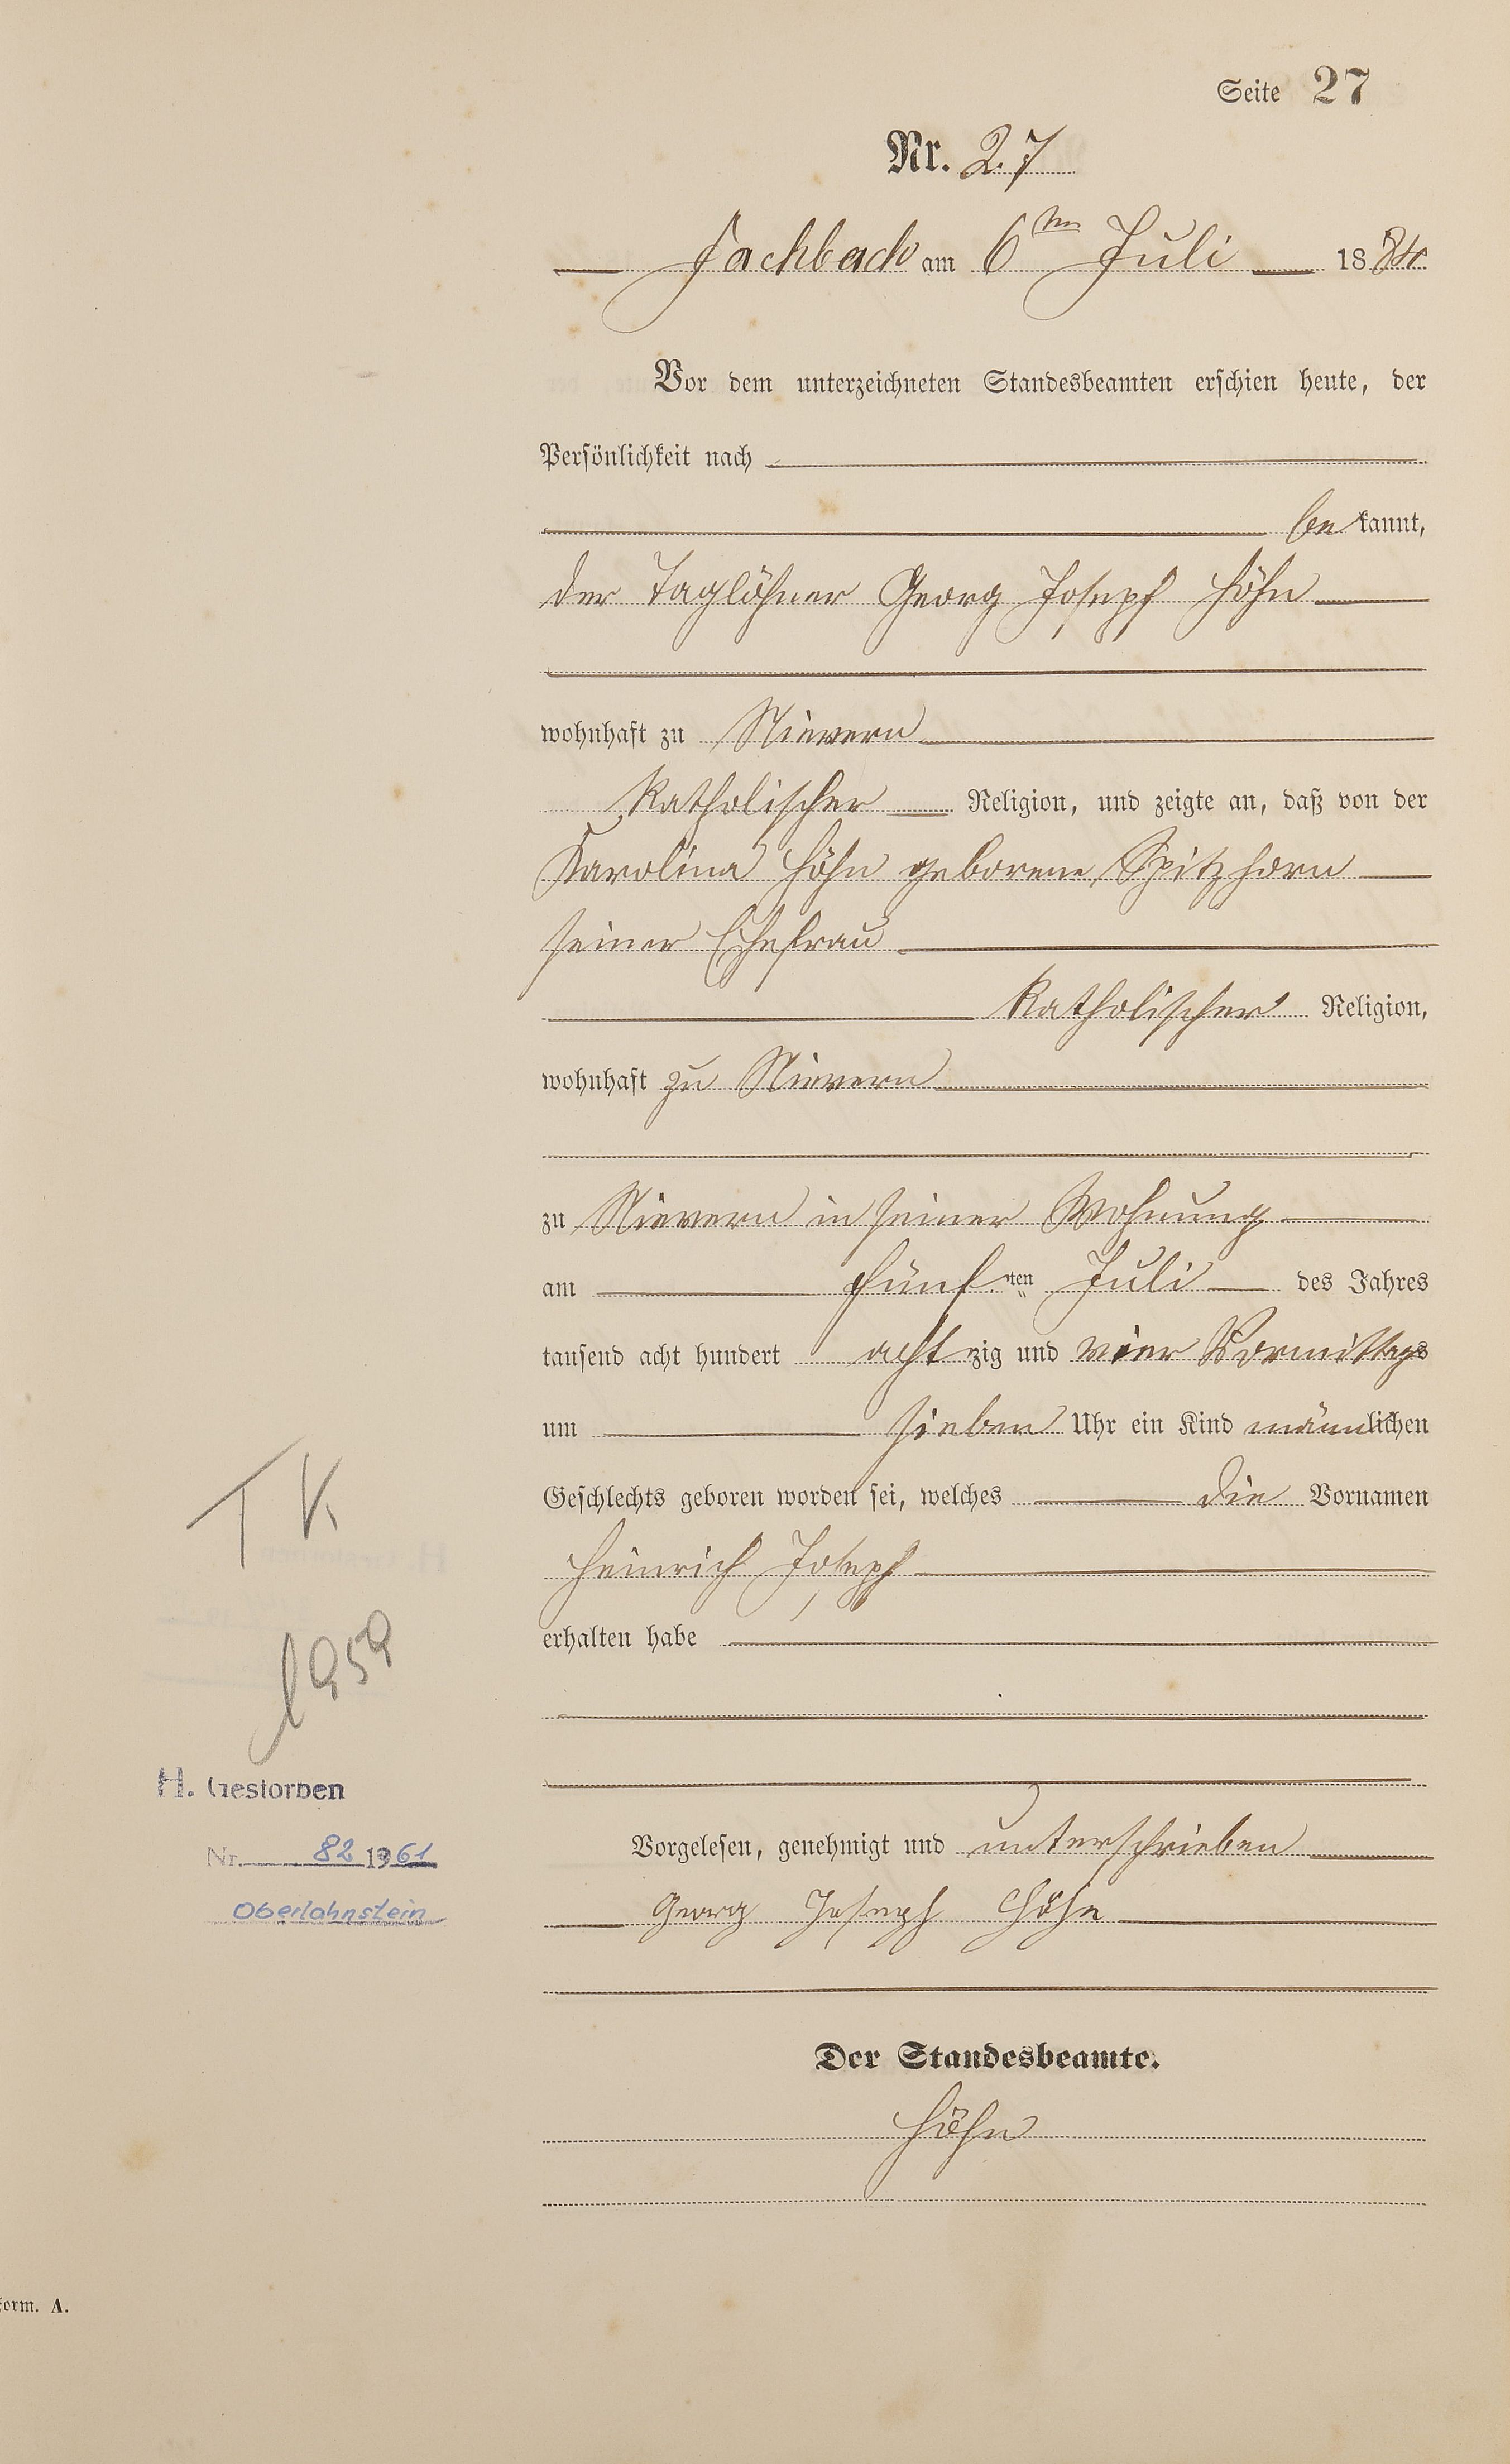 Seite 27
Nr. 27
Fachbach am 6ten Juli 1884
Vor dem unterzeichneten Standesbeamten erschien heute, der
Persönlichkeit nach
be kannt,
der Taglöhner Georg Joseph Höhn
wohnhaft zu Nievern
katholischer Religion, und zeigte an, daß von der
Karolina Höhn geborene Spitzhorn
seiner Ehefrau
katholischer Religion,
wohnhaft zu Nievern
zu Nievern in seiner Wohnung
am fünften Juli des Jahres
tausend acht hundert acht zig und vier Vormittags
um sieben Uhr ein Kind männlichen
Geschlechts geboren worden sei, welches die Vornamen
Heinrich Joseph
erhalten habe
T K
1959
H. Gestorben
Nr. 82 1961
Oberlahnstein
Vorgelesen, genehmigt und unterschrieben
Georg Joseph Höhn
Der Standesbeamte.
Höhn
Form. A.